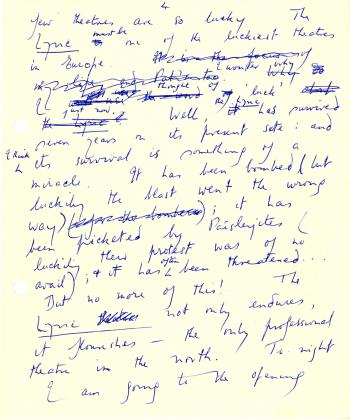 4
few theatres are so lucky. The
Lyric must be one of the luckiest theatres
in Europe.
I wonder why
I thought of 'luck'
just now? Well, the Lyric has survived
seven years on its present site: and
I think its survival is something of a
miracle. It has been bombed (but
luckily the blast went the wrong
way); it has
been picketed by Paisleyites (
luckily their protest was of no
avail); & it has often been threatened...
But no more of this! The
Lyric not only endures,
it flourishes – the only professional
theatre in the north. To-night
I am going to the opening